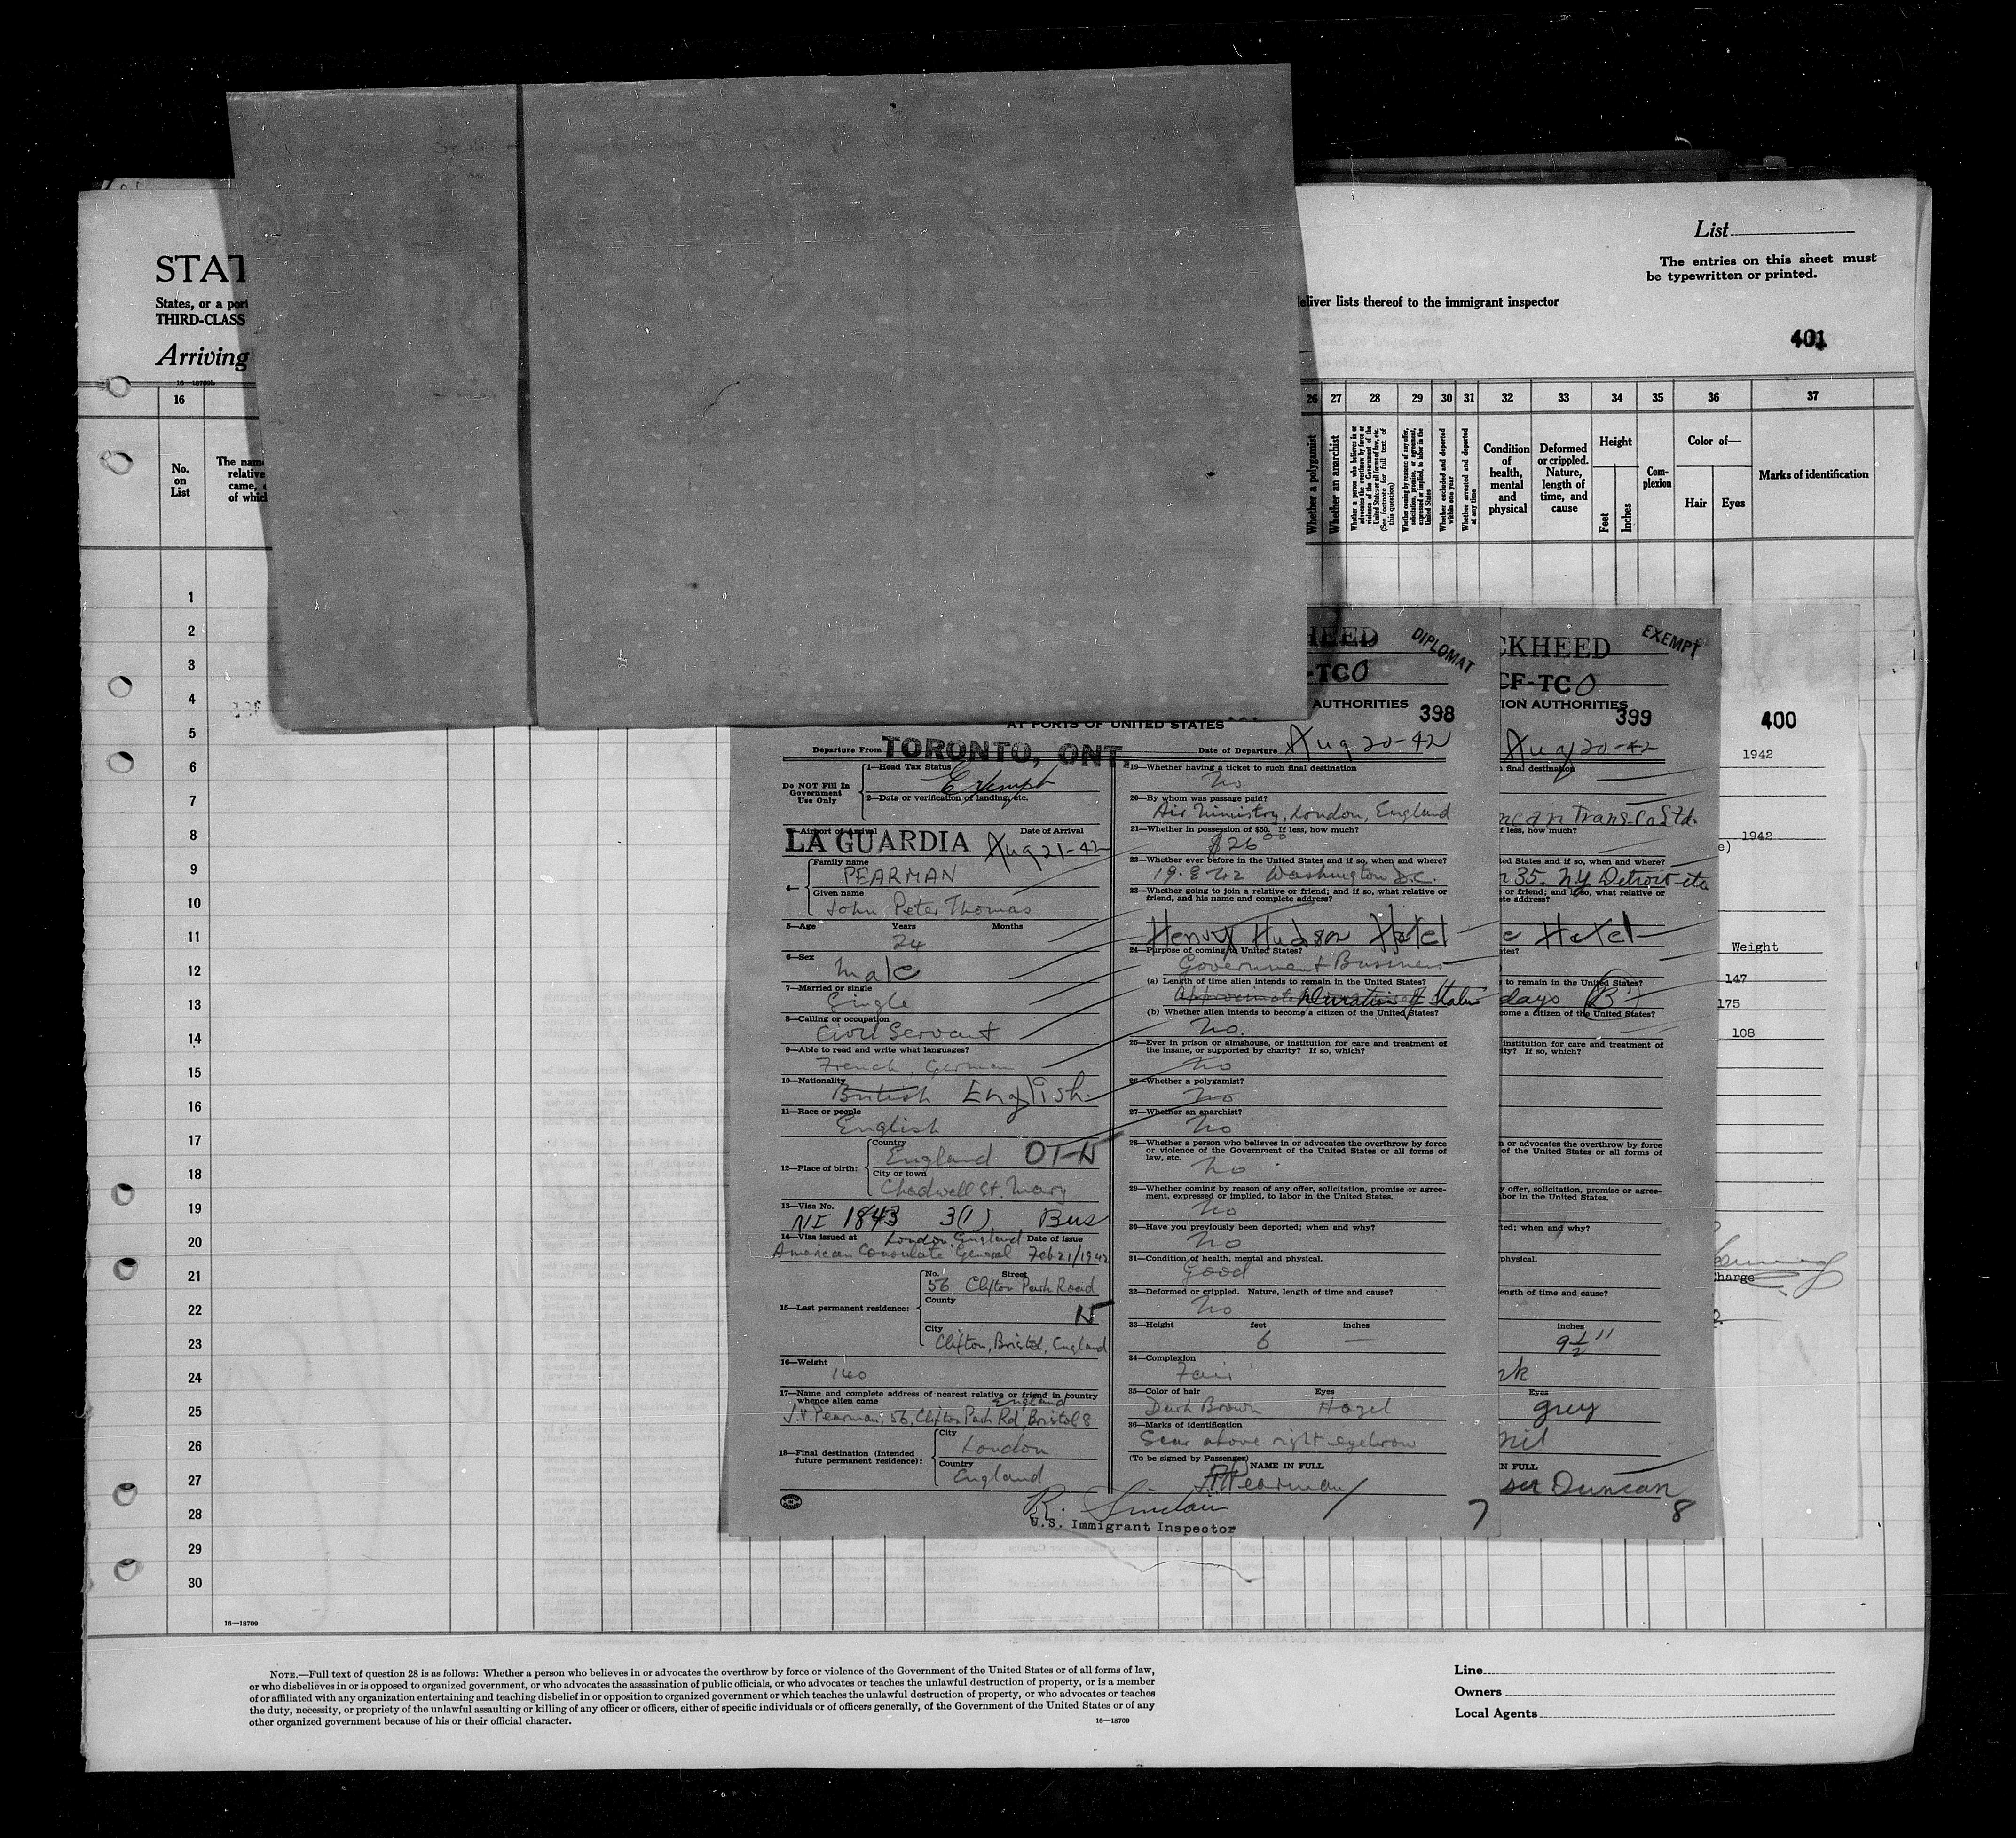 List
The entries on this sheet must
be typewritten or printed.
STAT
States, or a port
THIRD-CLASS
deliver lists thereof to the immigrant inspector
401
Arriving
16—18709b
16
26 27 28 29 30 31 32 33 34 35 36 37
No.
on
List
The name
relative
came,
of which
Whether a polygamist
Whether an anarchist
Whether a person who believes in or
advocates the overthrow by force or
violence of the Government of the
United States or all forms of law, etc.
(See footnote for full text of
this question)
Whether coming by reason of any offer,
solicitation, promise, or agreement,
expressed or implied, to labor in the
United States
Whether excluded and deported
within one year
Whether arrested and deported
at any time
Condition
of
health,
mental
and
physical
Deformed
or crippled.
Nature,
length of
time, and
cause
Height
Feet
Inches
Com-
plexion
Color of—
Hair
Eyes
Marks of identification
1
2
3
4
5
6
7
8
9
10
11
12
13
14
15
16
17
18
19
20
21
22
23
24
25
26
27
28
29
30
16—18709
HEED
DIPLOMAT
-TCO
AUTHORITIES
398
AT PORTS OF UNITED STATES
Departure From TORONTO, ONT.
Date of Departure Aug 20-42
Do NOT Fill In
Government
Use Only
1—Head Tax Status
Exempt
2—Date or verification of landing, etc.
3—Airport of Arrival
Date of Arrival
LA GUARDIA Aug 21-42
4—
Family name
PEARMAN
Given name
John Peter Thomas
5—Age Years Months
24
6—Sex
Male
7—Married or single
Single
8—Calling or occupation
Civil Servant
9—Able to read and write what languages?
French, German
10—Nationality
British English
11—Race or people
English
12—Place of birth:
Country
England OT-N
City or town
Chadwell St. Mary
13—Visa No.
NI 1843 3(1) Bus
14—Visa issued at London, England Date of issue
American Consulate General Feb 21/1942
15—Last permanent residence:
No. Street
56 Clifton Park Road
County
N
City
Clifton, Bristol, England
16—Weight
140
17—Name and complete address of nearest relative or friend in country
whence alien came England
J.V. Pearman, 56, Clifton Park Rd, Bristol 8
18—Final destination (Intended
future permanent residence):
City
London
Country
England
19—Whether having a ticket to such final destination
No
20—By whom was passage paid?
Air Ministry, London, England
21—Whether in possession of $50. If less, how much?
$26.00
22—Whether ever before in the United States and if so, when and where?
19.8.42 Washington D.C.
23—Whether going to join a relative or friend; and if so, what relative or
friend, and his name and complete address?
Henry Hudson Hotel
24—Purpose of coming to United States?
Government Business
(a) Length of time alien intends to remain in the United States?
Approximate Duration of Status
(b) Whether alien intends to become a citizen of the United States?
No.
25—Ever in prison or almshouse, or institution for care and treatment of
the insane, or supported by charity? If so, which?
No
26—Whether a polygamist?
No
27—Whether an anarchist?
No
28—Whether a person who believes in or advocates the overthrow by force
or violence of the Government of the United States or all forms of
law, etc.
No
29—Whether coming by reason of any offer, solicitation, promise or agree-
ment, expressed or implied, to labor in the United States.
No
30—Have you previously been deported; when and why?
No
31—Condition of health, mental and physical.
Good
32—Deformed or crippled. Nature, length of time and cause?
No
33—Height feet inches
6 —
34—Complexion
Fair
35—Color of hair Eyes
Dark Brown Hazel
36—Marks of identification
Scar above right eyebrow
(To be signed by Passenger) NAME IN FULL
Pearman
R. Sinclair
U.S. Immigrant Inspector
7
CKHEED
EXEMPT
CF-TCO
ION AUTHORITIES
399
Aug 20-42
final destination
Trans-Co Ltd.
f less, how much?
ted States and if so, when and where?
35. N.Y. Detroit etc
or friend; and if so, what relative or
ete address?
e Hotel
ates?
to remain in the United States?
days (B)
come a citizen of the United States?
institution for care and treatment of
ity? If so, which?
n or advocates the overthrow by force
of the United States or all forms of
y offer, solicitation, promise or agree-
abor in the United States.
ted; when and why?
physical.
ength of time and cause?
inches
9 1/2"
rk
Eyes
grey
nil
N FULL
ser Duncan
8
400
1942
1942
e)
Weight
147
175
108
Charge
NOTE.—Full text of question 28 is as follows: Whether a person who believes in or advocates the overthrow by force or violence of the Government of the United States or of all forms of law,
or who disbelieves in or is opposed to organized government, or who advocates the assassination of public officials, or who advocates or teaches the unlawful destruction of property, or is a member
of or affiliated with any organization entertaining and teaching disbelief in or opposition to organized government or which teaches the unlawful destruction of property, or who advocates or teaches
the duty, necessity, or propriety of the unlawful assaulting or killing of any officer or officers, either of specific individuals or of officers generally, of the Government of the United States or of any
other organized government because of his or their official character.
16—18709
Line
Owners
Local Agents